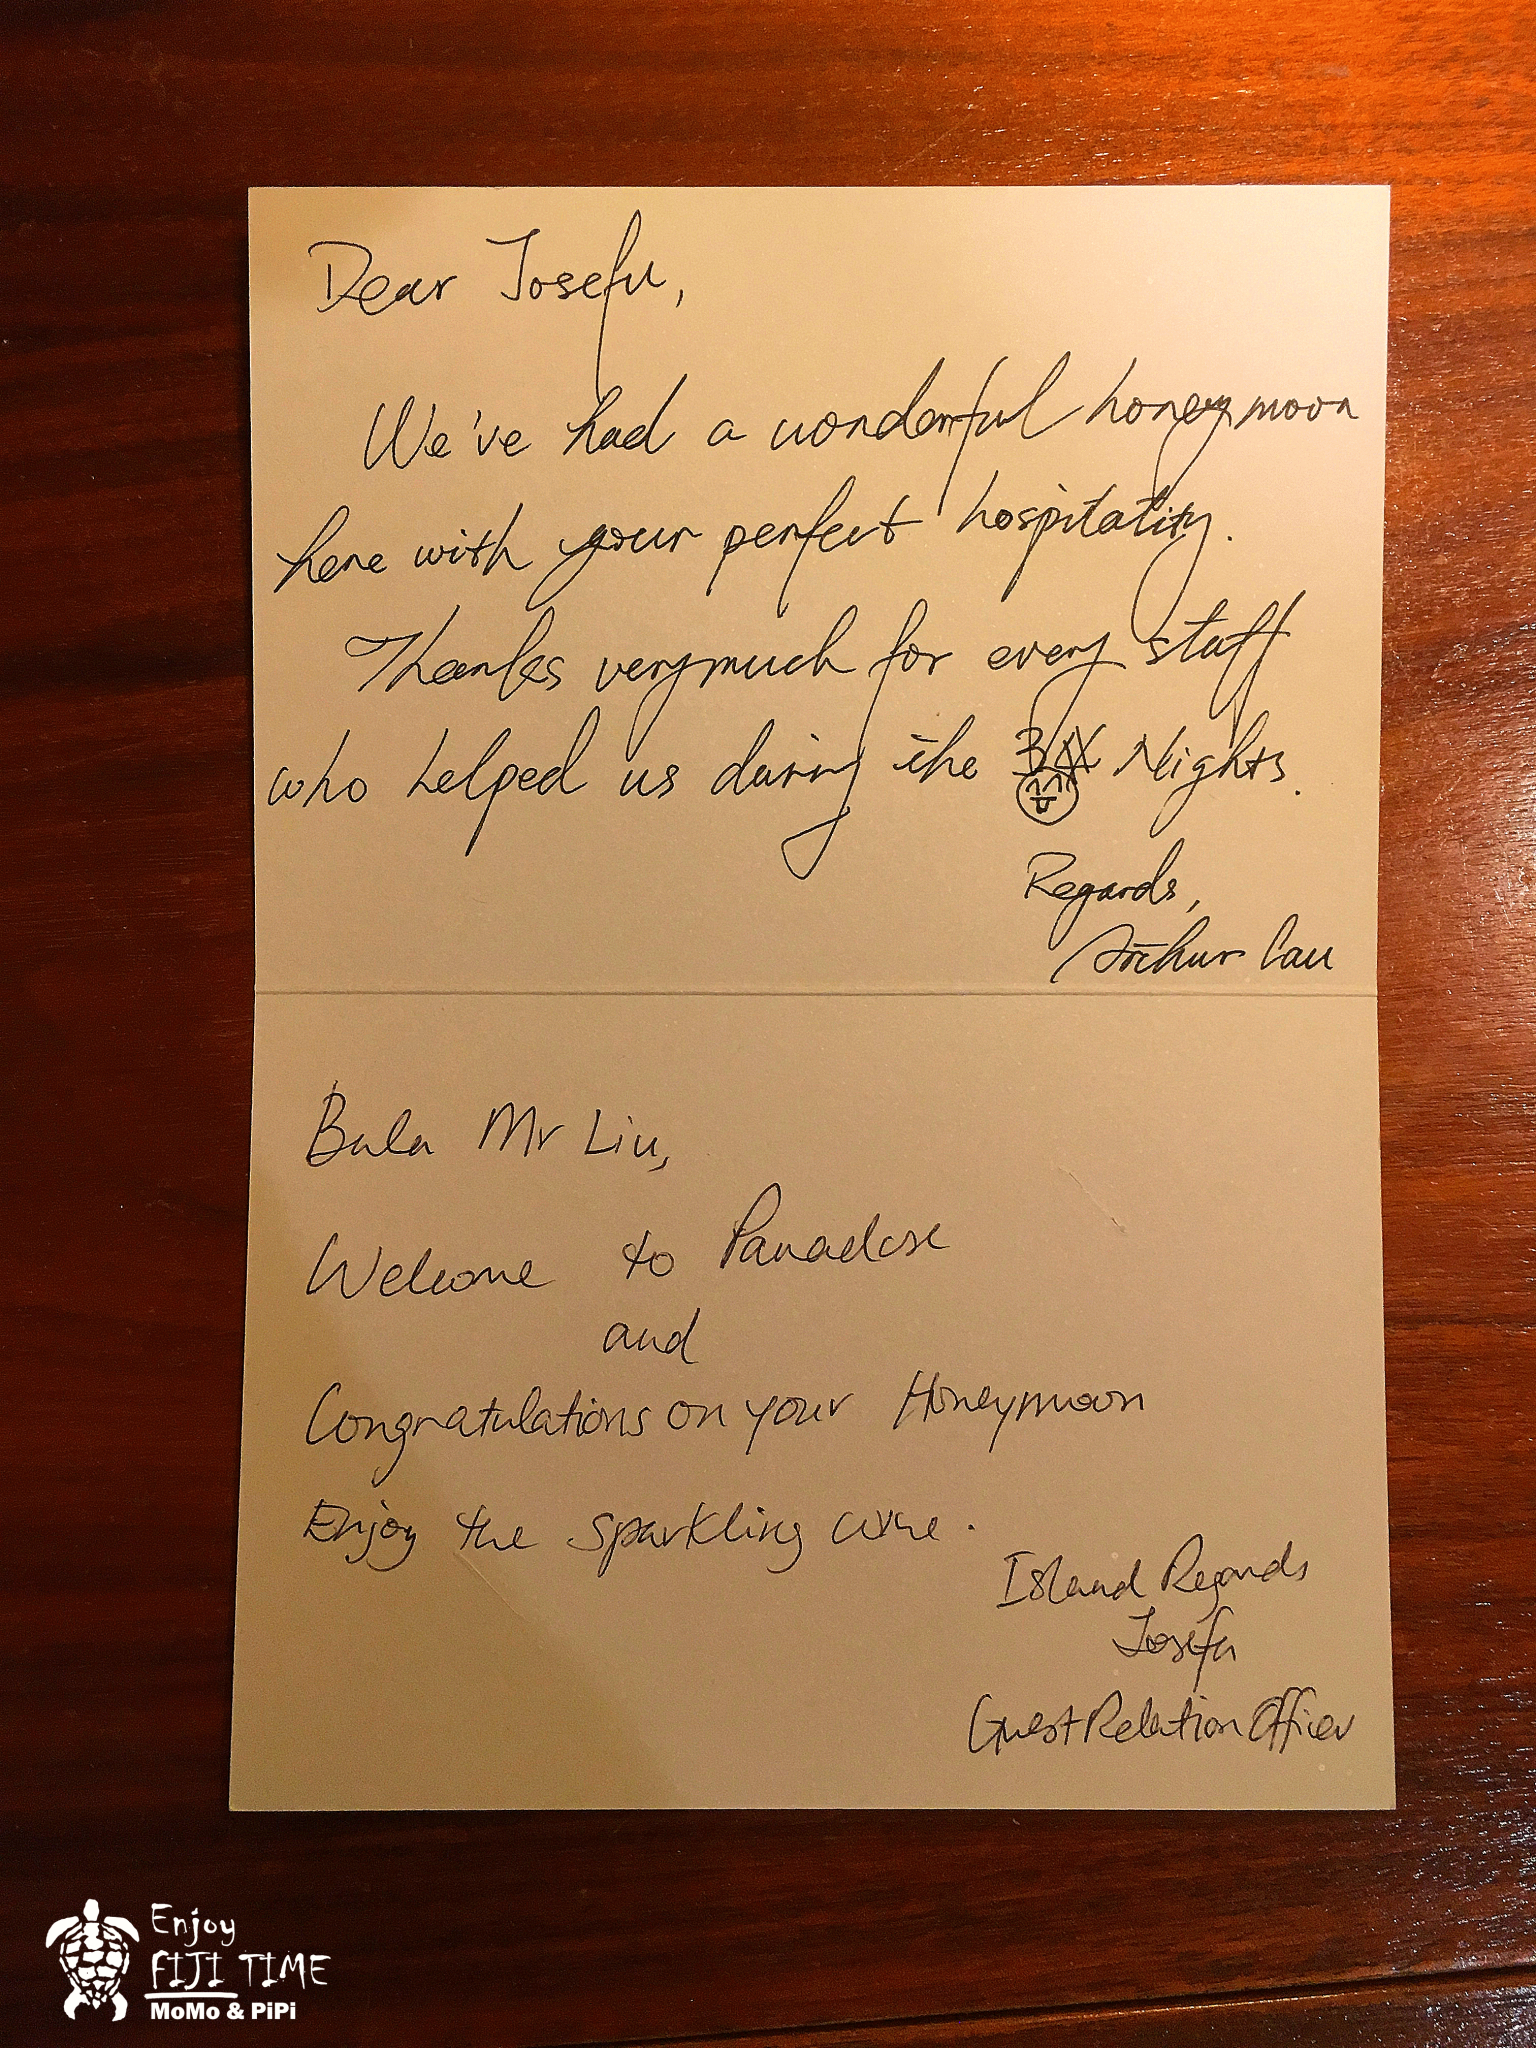 Dear Josefu,
We've had a wonderful honeymoon
here with your perfect hospitality.
Thanks very much for every staff
who helped us during the 3 Nights.
Regards,
Arthur Cau
Bula Mr Liu,
Welcome to Paradise
and
Congratulations on your Honeymoon
Enjoy the sparkling wine.
Island Regards
Josefu
Guest Relation Officer
Enjoy
FIJI TIME
MoMo & PiPi